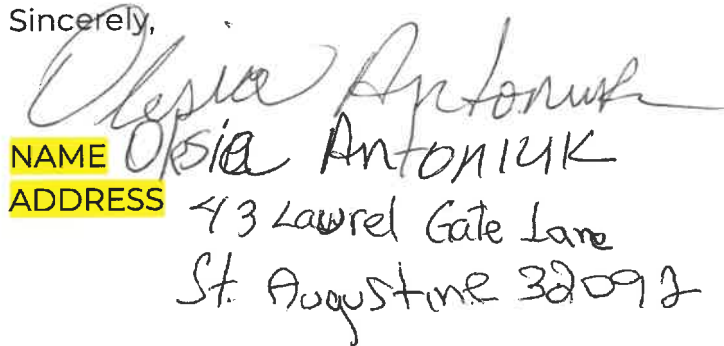 Sincerely,
Olesia Antoniuk
NAME Olesia Antoniuk
ADDRESS 43 Laurel Gate Lane
St. Augustine 32092